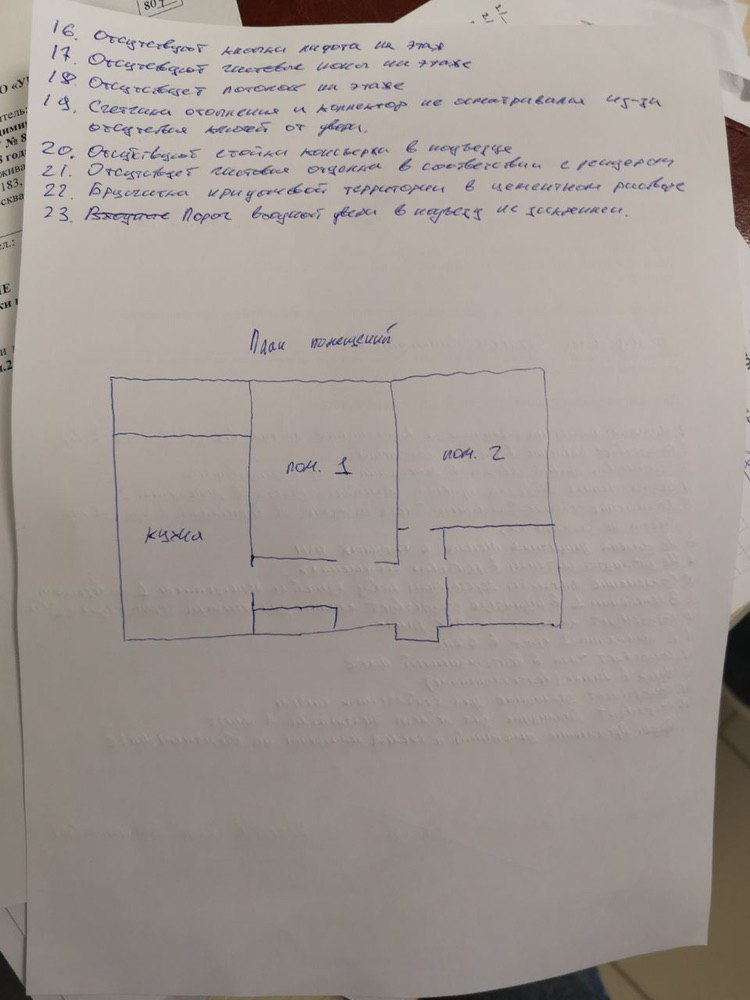 80 г
О «У
16. Отсутствуют кнопки лифта на этаж
17. Отсутсвуют чистовые полы на этаже
18. Отсутсвует потолок на этаже
19. Счетчики отопления и коллектор не осматривался из-за
отсутсвия ключей от двери.
20. Отсутствуют стойки консьержа в подъезде
21. Отсутсвует чистовая отделка в соответствии с
22. Брусчатка придомовой территории в цементном растворе
23. Входные Порог входной двери в подъезд не закреплен.
План помещений
пом. 1
пом. 2
кухня